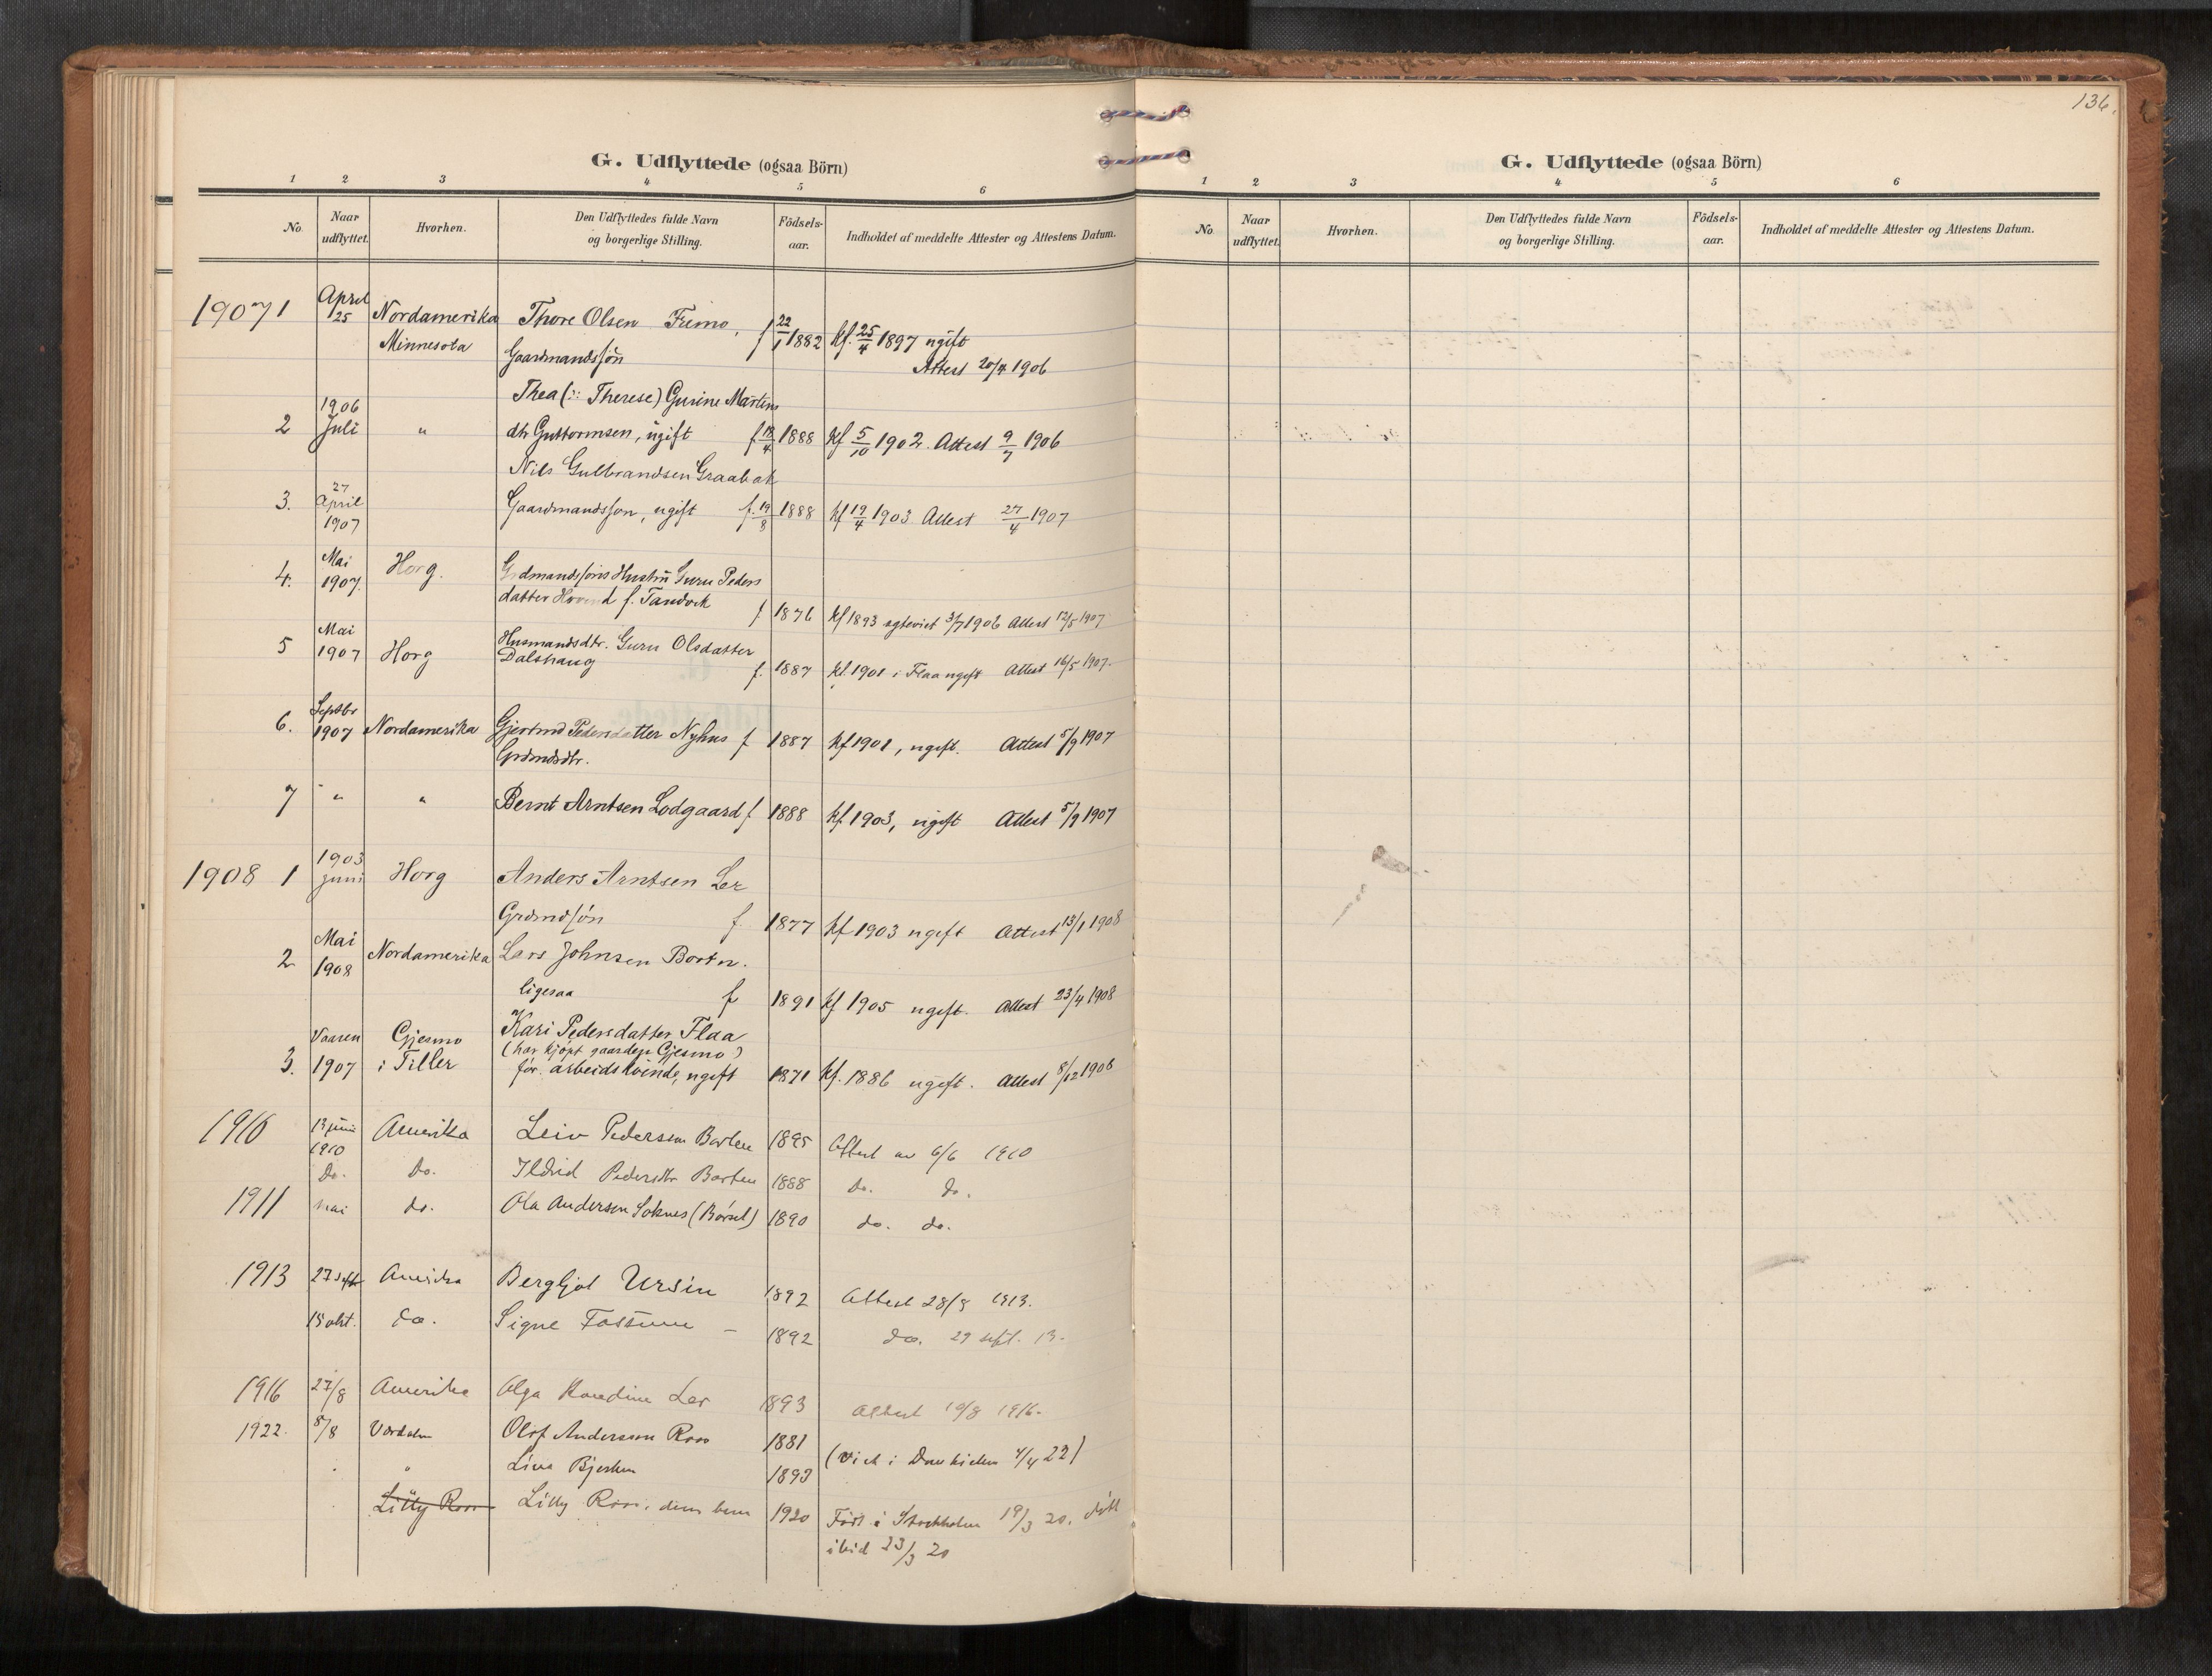 G. Udflyttede (ogsaa Börn)
1 2 3 4 5 6
No. Naar udflyttet. Hvorhen. Den Udflyttedes fulde Navn og borgerlige Stilling. Födsels-aar. Indholdet af meddelte Attester og Attestens Datum.
1907 1 April 25 Nordamerika Thore Olsen Fremo, f 22/1 1882 kf. 25/4 1897 ugift
Minnesota Gaardmandssøn Attest 20/4 1906
Thea (: Therese) Gurine Martins
2 1906 Juli " dtr Guttormsen, ugift f 18/4 1888 kf 5/10 1902. Attest 9/7 1906
Nils Gulbrandsen Graabak
3. 27 April 1907 Gaardmandssøn, ugift f. 19/8 1888 kf 19/4 1903 Attest 27/4 1907
4. Mai 1907. Horg. Grdmandssøns Hustru Guru Peders
datter f. Tandvek f 1876 kf 1893 egteviet 3/7 1906 Attest 12/5 1907
5 Mai 1907 Horg Husmandsdtr. Guru Olsdatter
Dalshaug f. 1887 kf. 1901 i Flaa ugift Attest 16/5 1907.
6. Septbr 1907 Nordamerika Gjertrud Pedersdatter Nyhus f 1887 kf 1901, ugift. Attest 5/9 1907
Grdmdsdtr.
7 " " Bernt Arntsen Lodgaard f 1888 kf. 1903, ugift Attest 5/9 1907
1908 1 1903 juni Horg Anders Arntsen Ler
Grdmdsøn f. 1877 kf 1903 ugift Attest 13/1 1908
2 Mai 1908 Nordamerika Lars Johnsen Borten.
ligesaa f 1891 kf 1905 ugift. Attest 23/4 1908
Vaaren Gjesmo Kari Pedersdatter Flaa
(har kjøpt gaarden Gjesmo)
3. 1907 i Tiller før. arbeidskvinde, ugift 1871 kf. 1886 ugift. Attest 8/12 1908
1910 13 juni 1910 Amerika Leiv Pedersen Borten 1895 Attest av 6/6 1910
Do. Do. Ildrid Pedersdtr Borten 1888 do. do.
1911 mai do. Ola Andersen Loknes (Børsel) 1890 do. do.
1913 27 sept Amerika Bergljot Ursin 1892 Attest 28/8 1913.
15 okt. do. Signe Fossum – 1892 do. 29 sept. 13.
1916 27/8 Amerika Olga Ler 1893 Attest 19/8 1916.
1922. 8/8 Værdalen Olof Andersson Roos 1881 (Viet i 4/4 22)
" Lina Bjerken 1893
Lilly Roos Lilly Roos, deres barn 1920 Født i Stockholm 19/3 20. døbt
ibid 23/3 20
136.
G. Udflyttede (ogsaa Börn)
1 2 3 4 5 6
No. Naar udflyttet. Hvorhen. Den Udflyttedes fulde Navn og borgerlige Stilling. Födsels-aar. Indholdet af meddelte Attester og Attestens Datum.